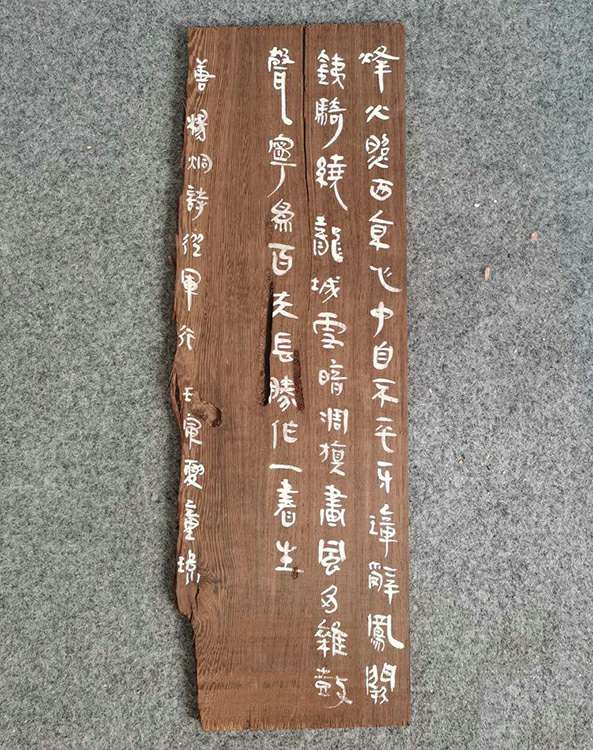 烽火照西京心中自不平牙璋辭鳳闕
鐵騎繞龍城雪暗凋旗畫風多雜鼓
聲寧為百夫長勝作一書生
書楊炯詩從軍行 壬寅夏童